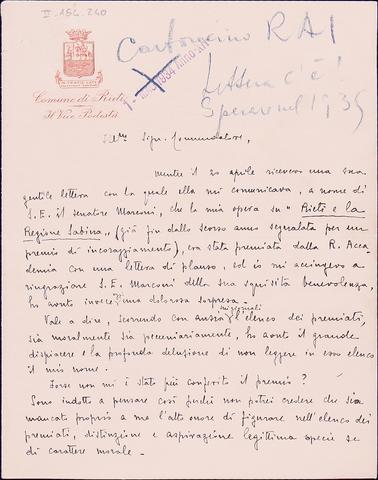 II. 154. 240
Cartoncino RAI
1934 Anno XII
Lettera c'è!
Sperare nel 1935
Comune di Rieti
Il Vice Podestà
Ill.mo Sign. Commendatore,
Mentre il 20 aprile ricevevo una sua
gentile lettera con la quale ella mi comunicava, a nome di
S. E. il senatore Marconi, che la mia opera su "Rieti e la
Regione Sabina" (già fin dallo scorso anno segnalata per un
premio di incoraggiamento), era stata premiata dalla R. Acca-
demia con una lettera di plauso, ed io mi accingevo a
ringraziare S. E. Marconi della sua squisita benevolenza,
ho avuto invece una dolorosa sorpresa.
Vale a dire, scorrendo con ansia sui giornali l'elenco dei premiati,
sia moralmente sia pecuniariamente, ho avuto il grande
dispiacere e la profonda delusione di non leggere in esso elenco
il mio nome.
Forse non mi è stato più conferito il premio?
Sono indotto a pensare così perché non potrei credere che sia
mancato proprio a me l'alto onore di figurare nell'elenco dei
premiati, distinzione e aspirazione legittima specie se
di carattere morale.